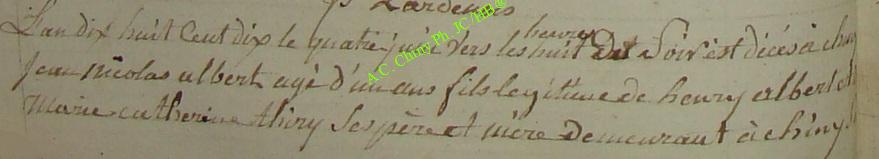 Lardenois
L'an dix huit Cent dix le quatre juin vers les huit heures du Soir est décés à chiny
Jean nicolas albert agé d'un ans fils legitime de henry albert et
Marie catherine thiry Ses père et mère Demeurant à chiny
A.C. Chiny Ph. JC/HB@